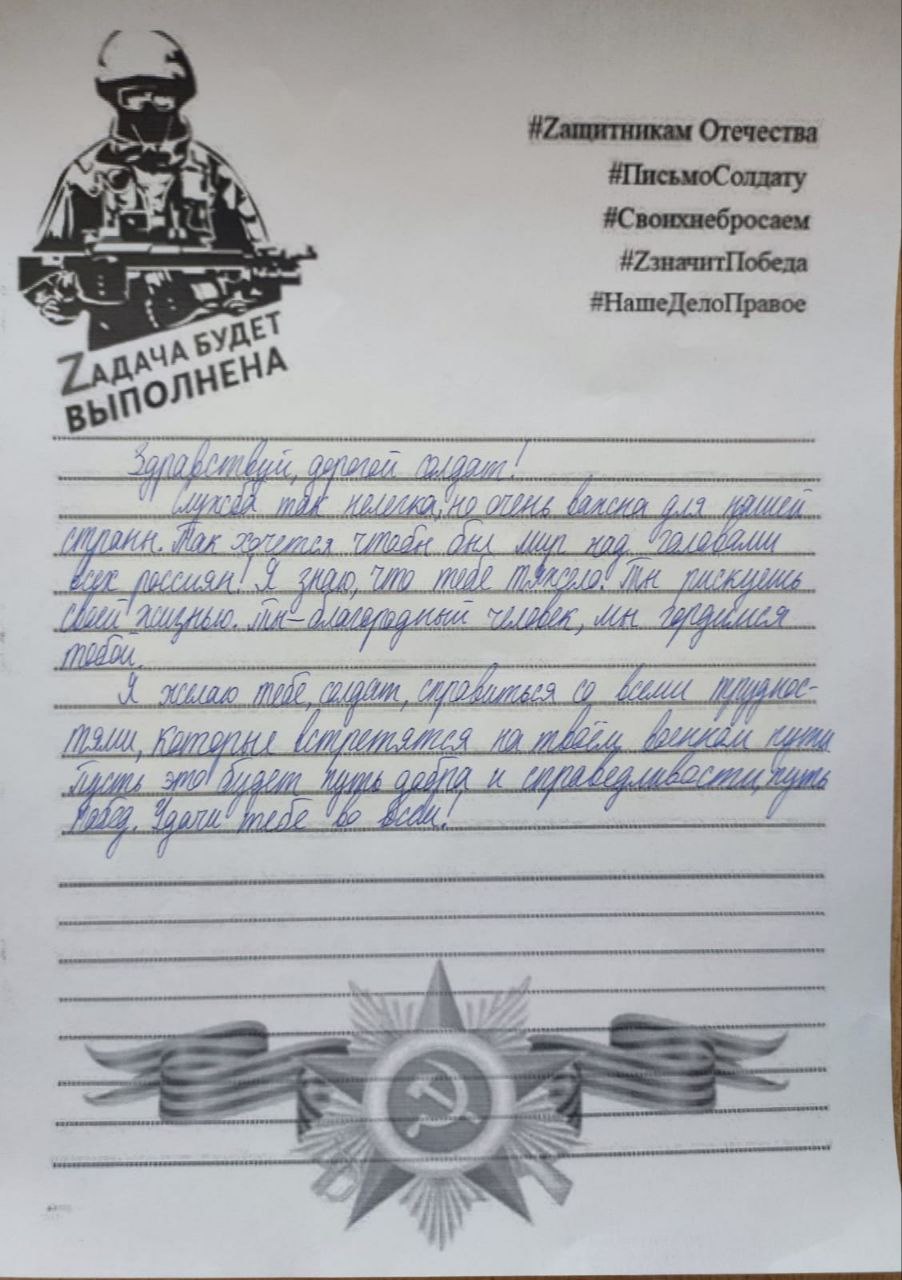 #Zащитникам Отечества
#ПисьмоСолдату
#Своихнебросаем
#ZзначитПобеда
#НашеДелоПравое
ZАДАЧА БУДЕТ
ВЫПОЛНЕНА
Здравствуй, дорогой солдат!
Служба так нелегка, но очень важна для нашей
страны. Так хочется чтобы был мир над головами
всех россиян! Я знаю, что тебе тяжело. Ты рискуешь
своей жизнью. Ты – благородный человек, мы гордимся
тобой.
Я желаю тебе, солдат, справиться со всеми труднос-
тями, которые встретятся на твоём военном пути
Пусть это будет путь добра и справедливости, путь
побед. Удачи тебе во всём!